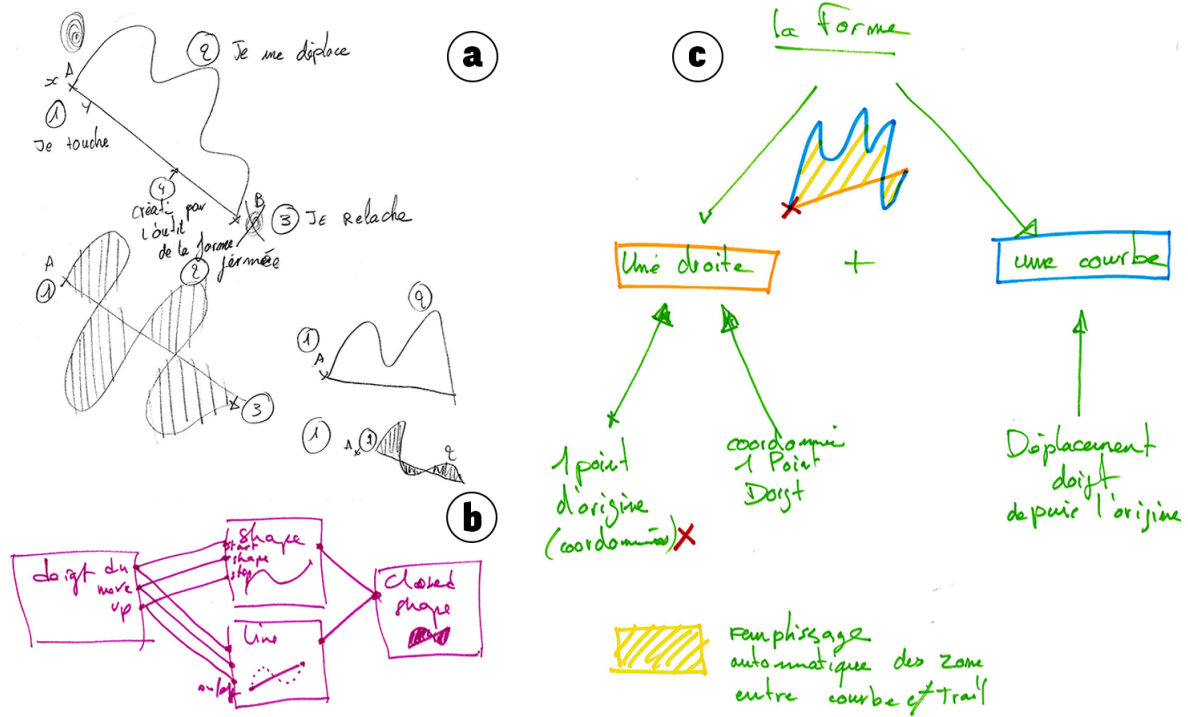 a
A
x
2 Je me déplace
1
y
Je touche
4
créati par
l'outil
de la forme
fermée
B
3 JE Relache
A
1
2
3
1
A
2
1
A x
2
b
doigt du
move
up
shape
start
shape
stop
Line
Closed
shape
c
la forme
Une droite
+
une courbe
1 point
d'origine
(coordonnées) X
coordonnée
1 Point
Doigt
Déplacement
doigt
depuis l'origine
remplissage
automatique des zone
entre courbe et Trait